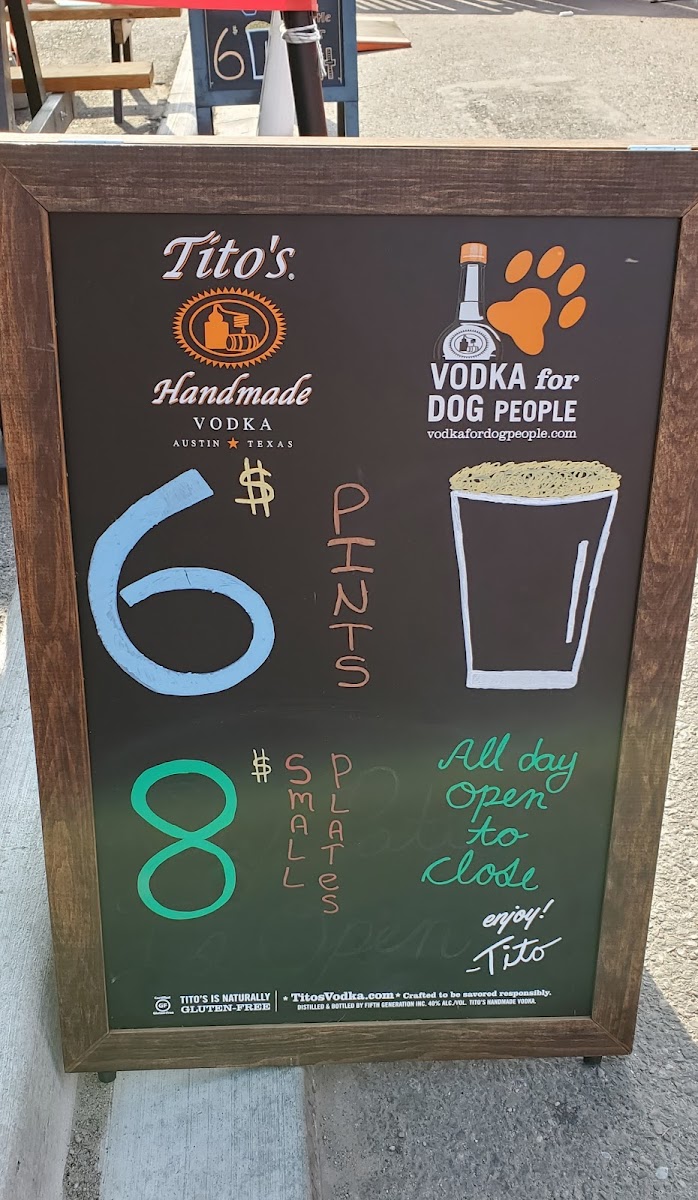 6 $
Tito's
Handmade
VODKA
AUSTIN ★ TEXAS
VODKA for
DOG PEOPLE
vodkafordogpeople.com
6 $ PINTS
8 $ SMALL PLATES
All day
Open
to
close
enjoy!
-Tito
GF
TITO'S IS NATURALLY
GLUTEN-FREE
* TitosVodka.com * Crafted to be savored responsibly.
DISTILLED & BOTTLED BY FIFTH GENERATION INC. 40% ALC./VOL. TITO'S HANDMADE VODKA.